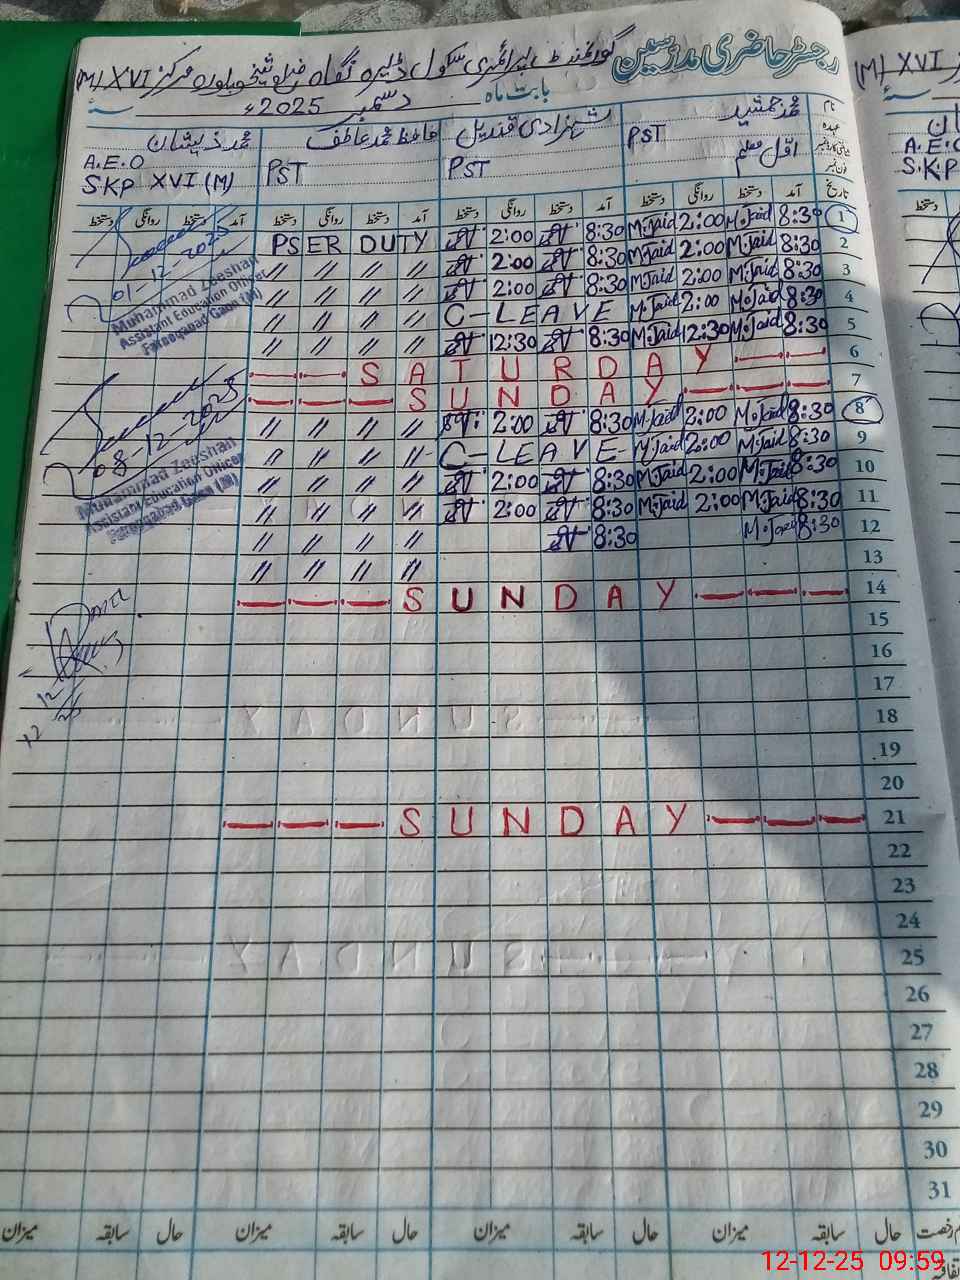 رجسٹر حاضری مدرسین گورنمنٹ پرائمری سکول ڈیرہ نگاہ ضلع شیخوپورہ مرکز XVI (M)
بابت ماہ دسمبر 2025ء سنہ
نام محمد جمشید شہزادی قندیل حافظ محمد عاطف محمد ذیشان
عہدہ PST PST PST A.E.O
اول معلم SKP XVI (M)
تاریخ آمد دستخط روانگی دستخط آمد دستخط روانگی دستخط آمد دستخط روانگی دستخط آمد دستخط روانگی دستخط
1 8:30 M.Jaid 2:00 M.Jaid 8:30 2:00 PSER DUTY
2 8:30 M.Jaid 2:00 M.Jaid 8:30 2:00 〃 〃 〃 〃
3 8:30 M.Jaid 2:00 M.Jaid 8:30 2:00 〃 〃 〃 〃
4 8:30 M.Jaid 2:00 M.Jaid C-LEAVE 〃 〃 〃 〃
5 8:30 M.Jaid 12:30 M.Jaid 8:30 12:30 〃 〃 〃 〃
6 SATURDAY
7 SUNDAY
8 8:30 M.Jaid 2:00 M.Jaid 8:30 2:00 〃 〃 〃 〃
9 8:30 M.Jaid 2:00 M.Jaid C-LEAVE 〃 〃 〃 〃
10 8:30 M.Jaid 2:00 M.Jaid 8:30 2:00 〃 〃 〃 〃
11 8:30 M.Jaid 2:00 M.Jaid 8:30 2:00 〃 〃 〃 〃
12 8:30 M.Jaid 8:30 〃 〃 〃 〃
13 〃 〃 〃 〃
14 SUNDAY
15
16
17
18
19
20
21 SUNDAY
22
23
24
25
26
27
28
29
30
31
01-12-2025
Muhammad Zeeshan
Assistant Education Officer
Farooqabad Gaon (M)
08-12-2025
Muhammad Zeeshan
Assistant Education Officer
Farooqabad Gaon (M)
حال سابقہ میزان حال سابقہ میزان حال سابقہ میزان حال سابقہ میزان
(M) XVI
A.E.O
SKP
12-12-25 09:59